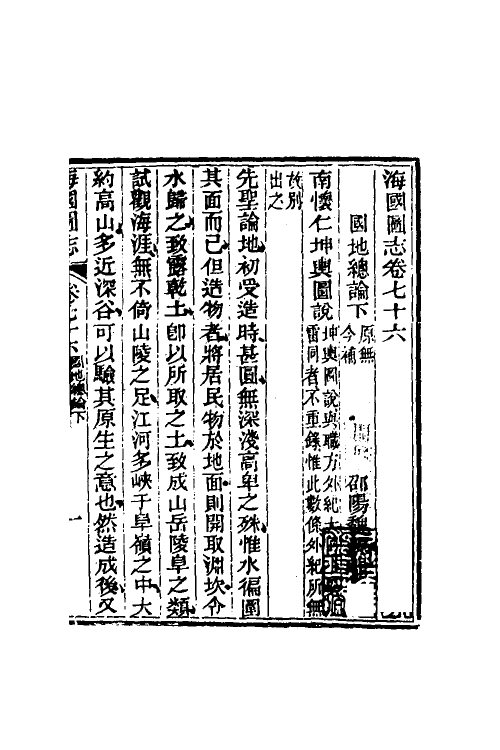 海國圖志卷七十六
國地總論下 原無今補 邵陽魏
南懷仁坤輿圖說 坤輿圖說與職方外紀大
雷同者不重錄惟此數條外紀所無
故別
出之
先聖論地初受造時甚圓無深淺高卑之殊惟水徧圍
其面而已但造物者將居民物於地面則開取淵坎令
水歸之致露乾土卽以所取之土致成山岳陵阜之類
試觀海涯無不倚山陵之足江河多峽于阜嶺之中大
約高山多近深谷可以驗其原生之意也然造成後又
海國圖志 卷七十六 國地總論下 一